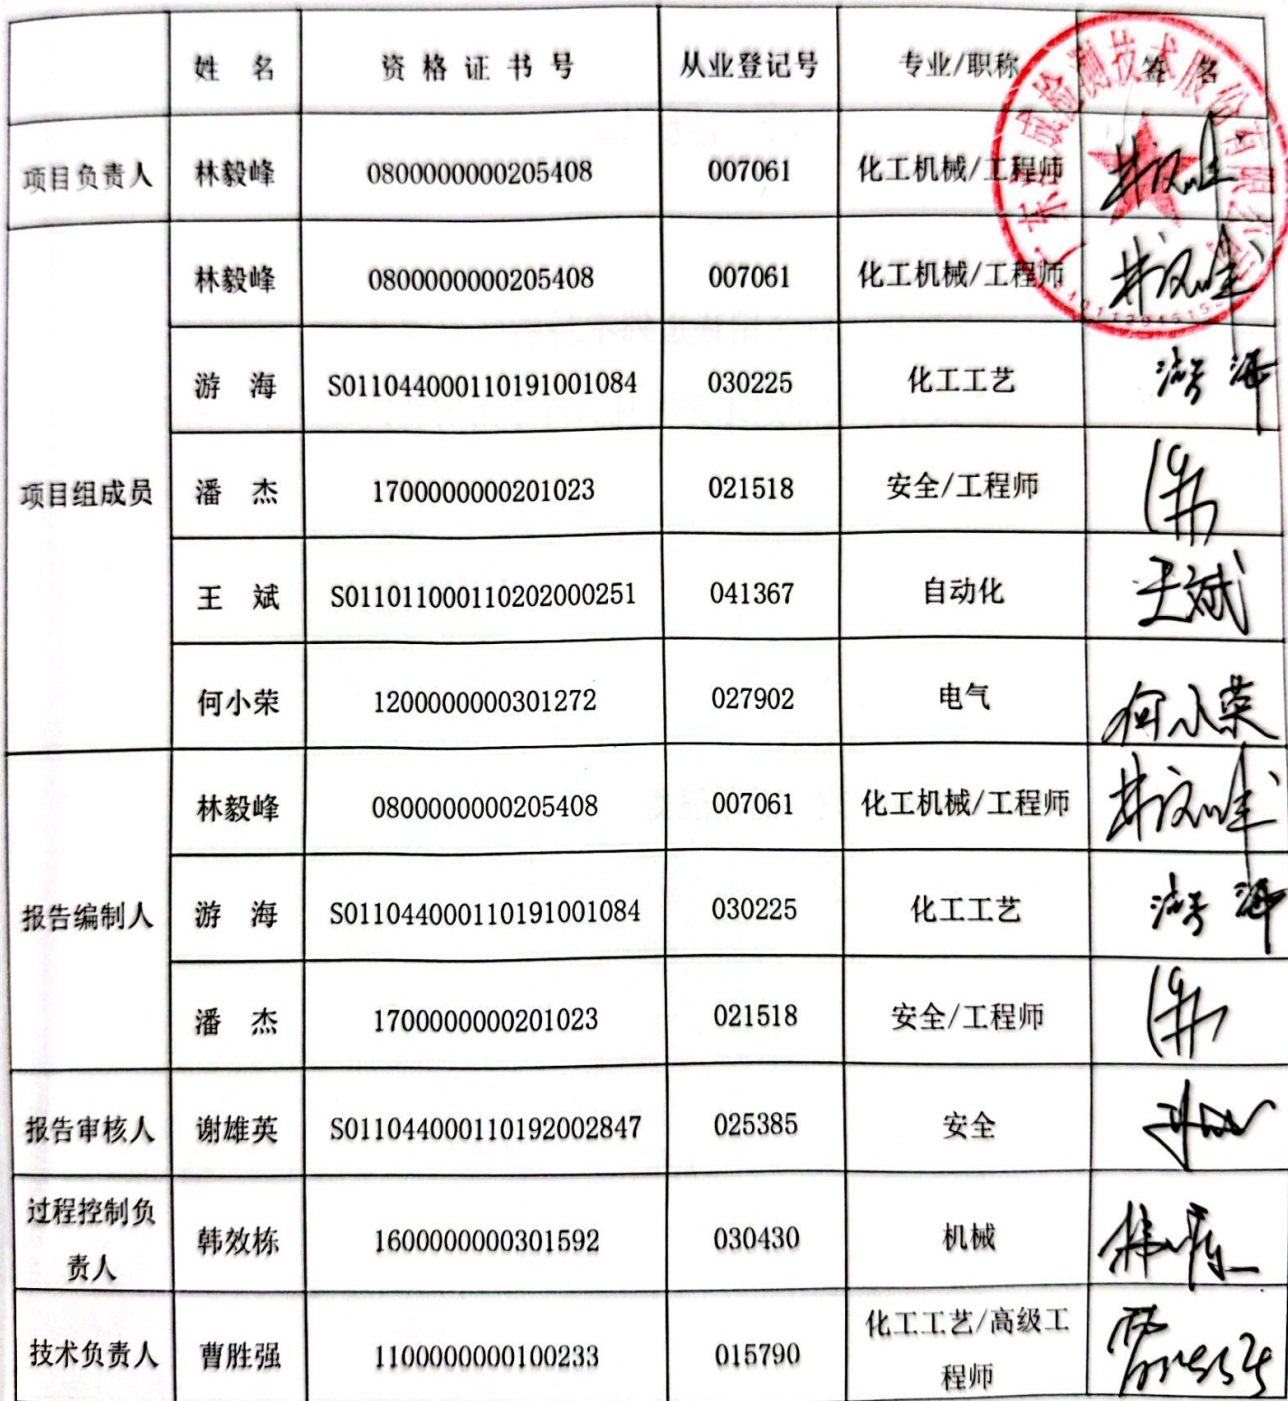 姓 名 资格证书号 从业登记号 专业/职称 签 名
项目负责人 林毅峰 0800000000205408 007061 化工机械/工程师
项目组成员 林毅峰 0800000000205408 007061 化工机械/工程师
游 海 S011044000110191001084 030225 化工工艺 游海
潘 杰 1700000000201023 021518 安全/工程师
王 斌 S011011000110202000251 041367 自动化 王斌
何小荣 1200000000301272 027902 电气 何小荣
报告编制人 林毅峰 0800000000205408 007061 化工机械/工程师
游 海 S011044000110191001084 030225 化工工艺 游海
潘 杰 1700000000201023 021518 安全/工程师
报告审核人 谢雄英 S011044000110192002847 025385 安全
过程控制负
责人 韩效栋 1600000000301592 030430 机械
技术负责人 曹胜强 1100000000100233 015790 化工工艺/高级工
程师
检测技术股份有限公司